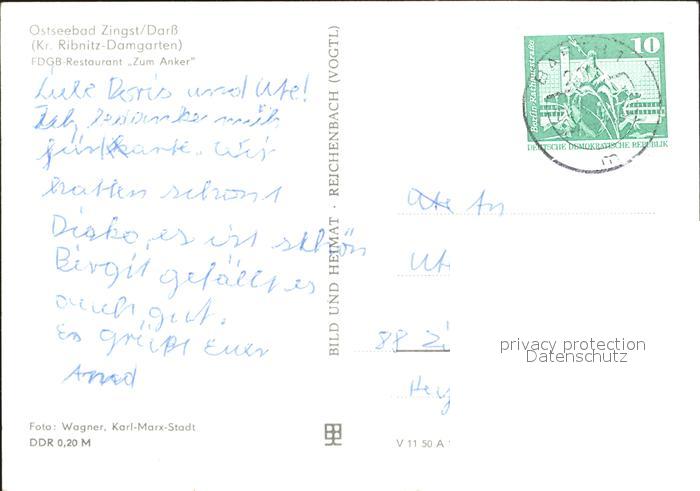 Ostseebad Zingst/Darß
(Kr. Ribnitz-Damgarten)
FDGB-Restaurant „Zum Anker"
Doris und Ute!
Ich bedanke mich
für Karte. Wir
hatten schons
Disko, es ist schön
Birgit gefällt es
auch gut.
Es grüßt Euer
BILD UND HEIMAT · REICHENBACH (VOGTL)
10
Berlin Rathausstraße
DEUTSCHE DEMOKRATISCHE REPUBLIK
m
Ute An
Ute
88 Zi
privacy protection
Datenschutz
Foto: Wagner, Karl-Marx-Stadt
DDR 0,20 M
V 11 50 A